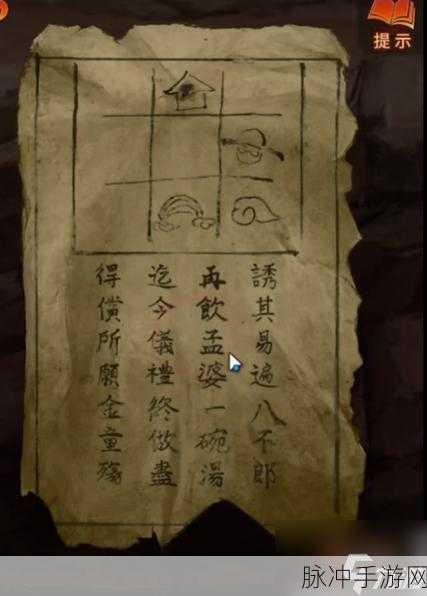 提示
誘其易遍八不郎
再飲孟婆一碗湯
迄今儀禮終做盡
得償所願金童殤
脉冲手游网